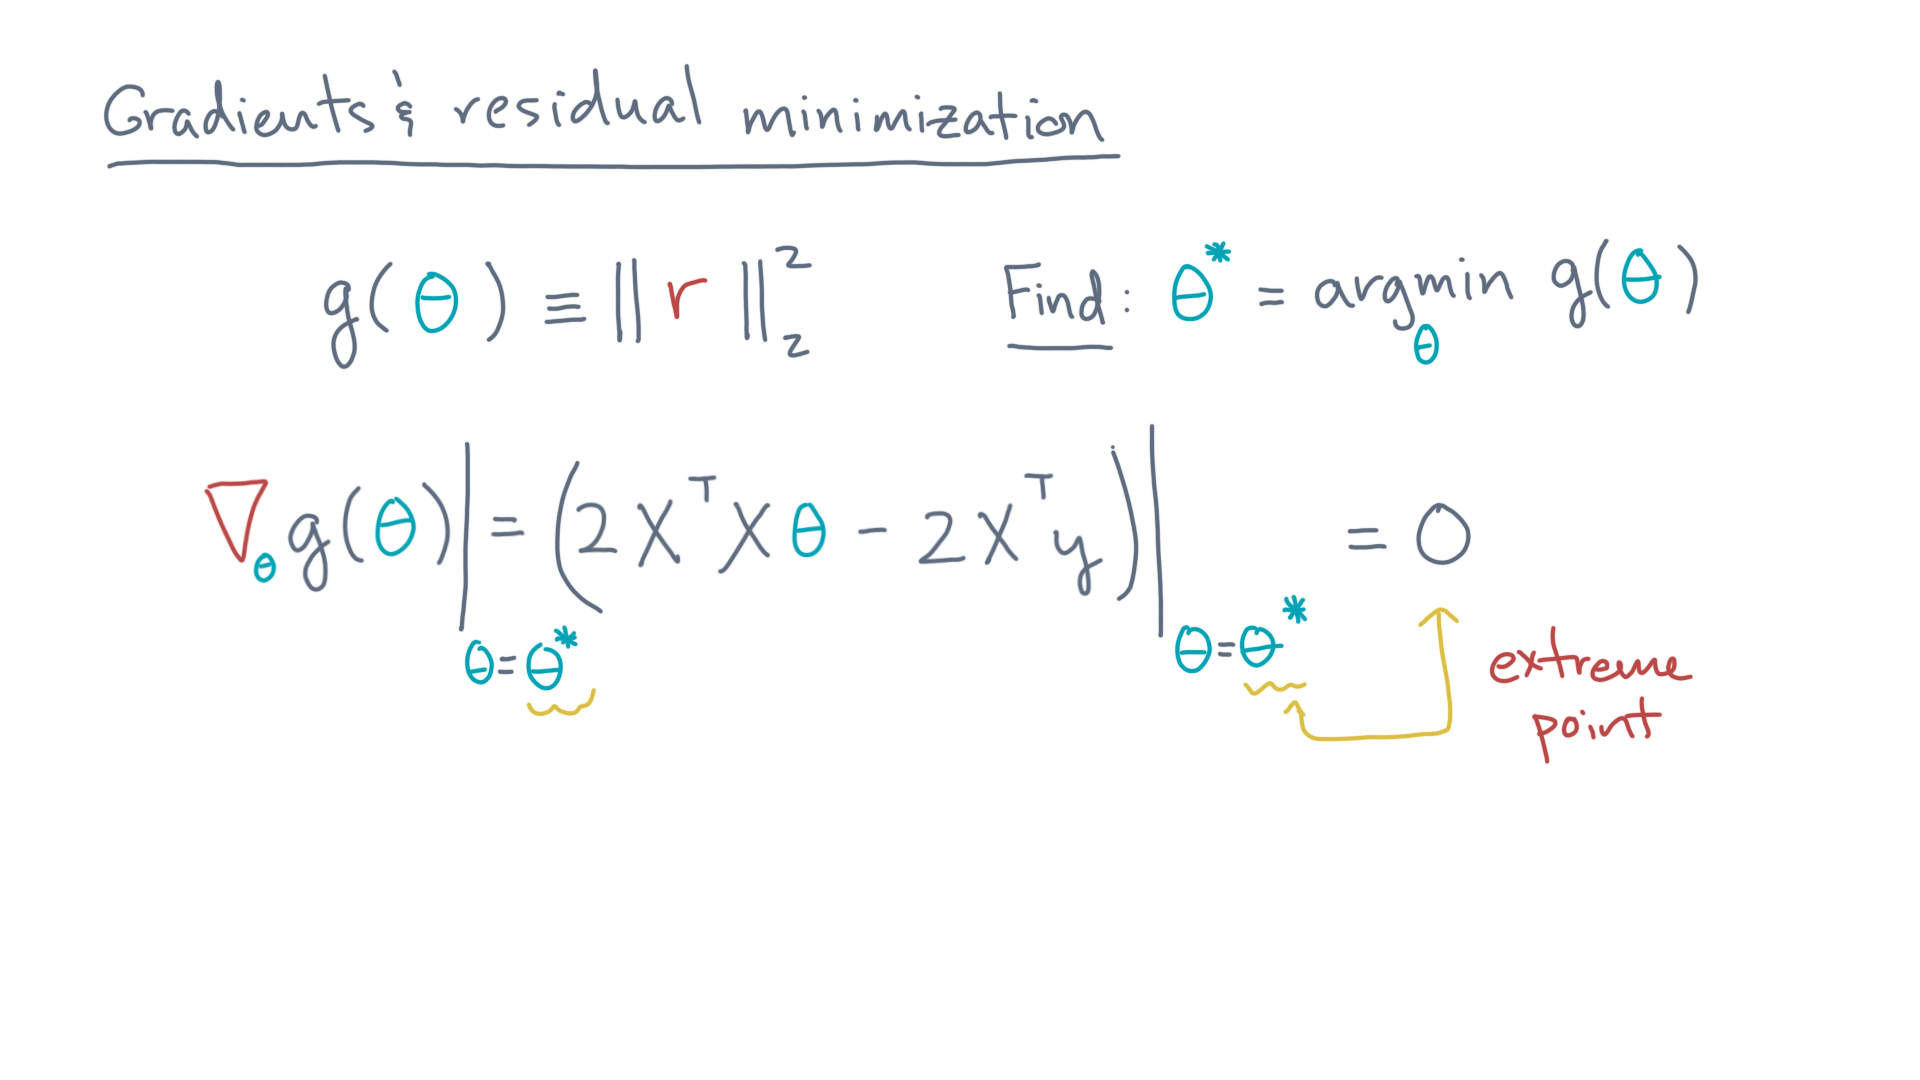 Gradients & residual minimization
g(θ) ≡ ‖r‖₂² Find: θ* = argmin g(θ)
θ
∇θ g(θ)| = (2XᵀXθ − 2Xᵀy)| = 0
θ=θ* θ=θ* extreme
point